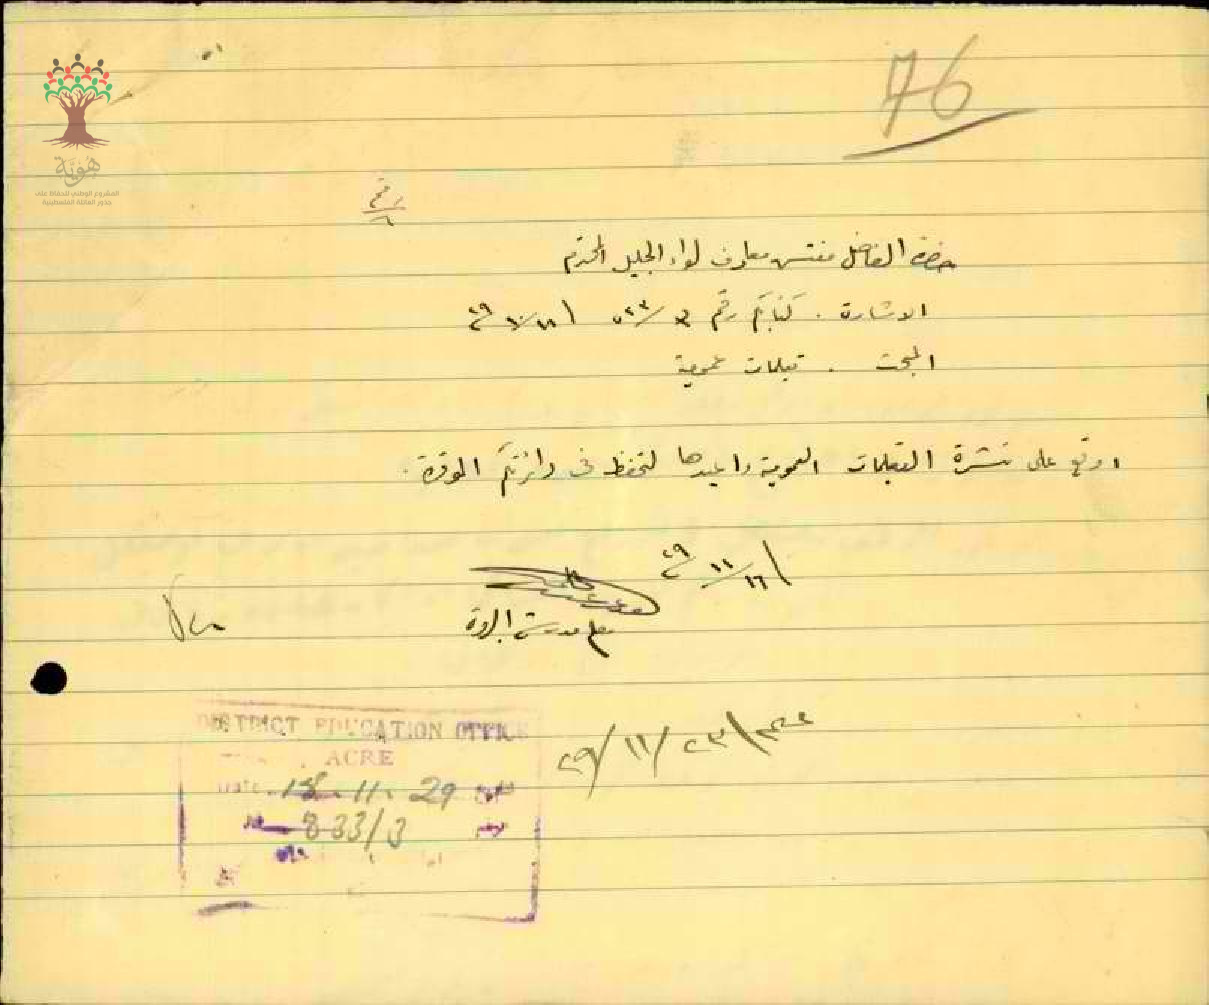 76
هوية
المشروع الوطني للحفاظ على
جذور العائلة الفلسطينية
رقم
٦
حضرة الفاضل مفتش معارف لواء الجليل المحترم
الاشارة . كتابكم رقم ٥٢٣/٣
المبحث . تعليمات عمومية
اوقع على نشرة التعليمات العمومية واعيدها لتحفظ في دائرتكم الموقرة .
١٦/١١/٢٩
معلم مدرسة البروة
٢٣/١١/٢٩
DISTRICT EDUCATION OFFICE
ACRE
Date 18.11.29 التاريخ
No 833/3 الرقم